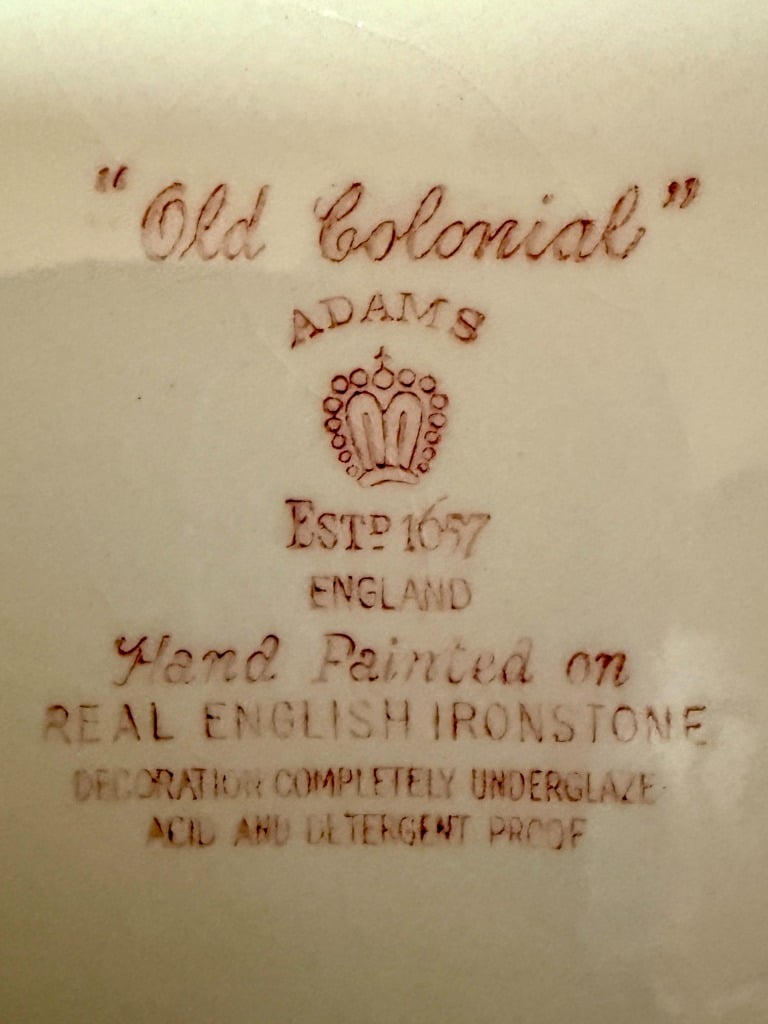 "Old Colonial"
ADAMS
ESTD 1657
ENGLAND
Hand Painted on
REAL ENGLISH IRONSTONE
DECORATION COMPLETELY UNDERGLAZE
ACID AND DETERGENT PROOF